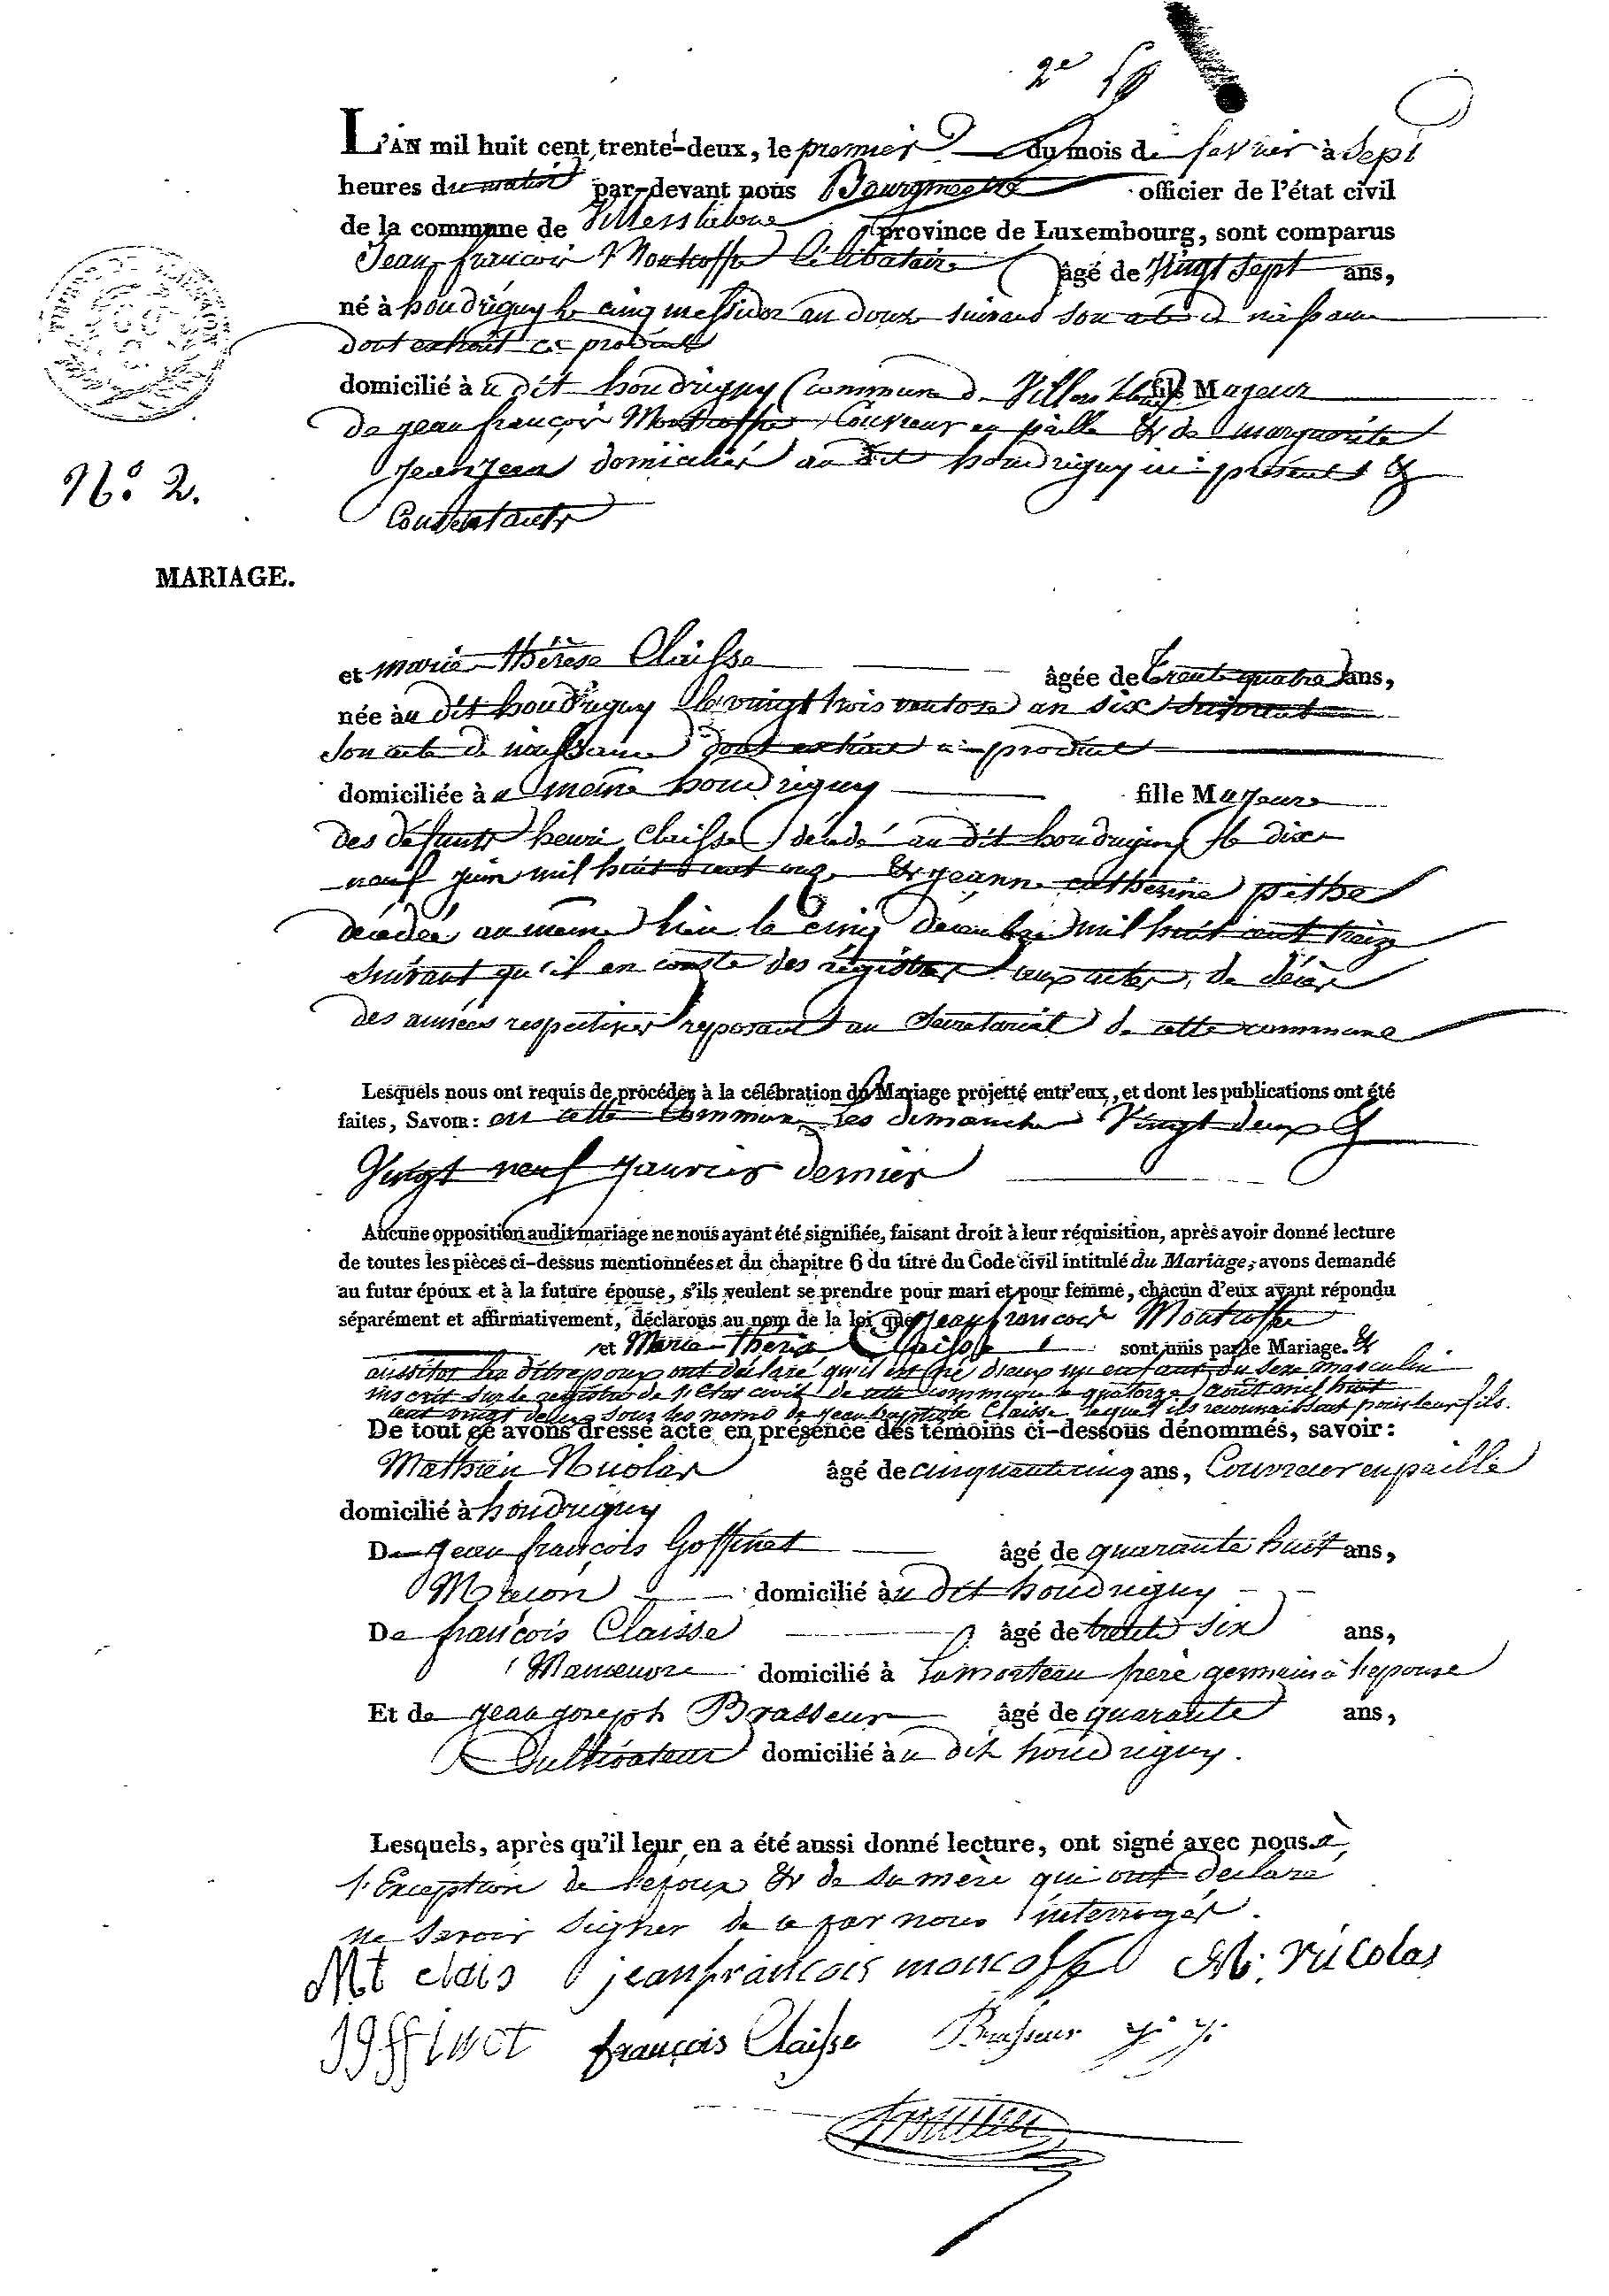 2e
L'AN mil huit cent trente-deux, le premier du mois de fevrier à Sept
heures du matin par-devant nous Bourgmestre officier de l'état civil
de la commune de Villers la loue province de Luxembourg, sont comparus
Jean francois Montcoffe Célibataire âgé de Vingt Sept ans,
né à houdrigny le cinq messidor an douze suivant son acte de naissance
dont extrait ci produit
domicilié à u dit houdrigny Commune de Villers la loue fils Majeur
de jean françois Montcoffe, Couvreur en paille & de marguerite
jeanjean domiciliés au dit houdrigny ici présents &
Consentants
N.º 2.
MARIAGE.
et marie Thérèse Claisse âgée de trente quatre ans,
née à u dit houdrigny le vingt trois ventose an six suivant
son acte de naissance dont extrait ci produit
domiciliée à u même houdrigny fille Majeure
des défunts henri Claisse décédé au dit houdrigny le dix
neuf juin mil huit cent onze & jeanne catherine pethe
décédée au même lieu le cinq décembre mil huit cent treize
suivant qu'il en conste des régistres aux actes de décès
des années respectives reposant au Secretariat de cette commune
Lesquels nous ont requis de procéder à la célébration du Mariage projetté entr'eux, et dont les publications ont été
faites, SAVOIR: en cette Commune les dimanche Vingt deux &
Vingt neuf janvier dernier
Aucune opposition audit mariage ne nous ayant été signifiée, faisant droit à leur réquisition, après avoir donné lecture
de toutes les pièces ci-dessus mentionnées et du chapitre 6 du titre du Code civil intitulé du Mariage, avons demandé
au futur époux et à la future épouse, s'ils veulent se prendre pour mari et pour femme, chacun d'eux ayant répondu
séparément et affirmativement, déclarons au nom de la loi que jean francois Montcoffe
et Marie Therèse Claisse sont unis par le Mariage. &
aussitot les dits epoux ont déclaré qu'il est né d'eux un enfant du sexe masculin
inscrit sur le registre de l'Etat civil de cette commune le quatorze août mil huit
cent vingt deux sous les noms de jean baptiste Claisse lequel ils reconnaissent pour leur fils.
De tout ce avons dressé acte en présence des témoins ci-dessous dénommés, savoir:
Mathieu Nicolas âgé de cinquante cinq ans, Couvreur en paille
domicilié à houdrigny
De jean françois Goffinet âgé de quarante huit ans,
Macon domicilié à u dit houdrigny
De françois Claisse âgé de trente six ans,
Manoeuvre domicilié à Lamorteau frère germain à l'epouse
Et de jean joseph Brasseur âgé de quarante ans,
Cultivateur domicilié à u dit houdrigny.
Lesquels, après qu'il leur en a été aussi donné lecture, ont signé avec nous à
l'Exception de l'epoux & de sa mère qui ont declaré
ne savoir signer de ce par nous interrogés.
Mt clais jeanfrancois moncoffe M. nicolas
jgffinet françois Claisse Brasseur j. j.